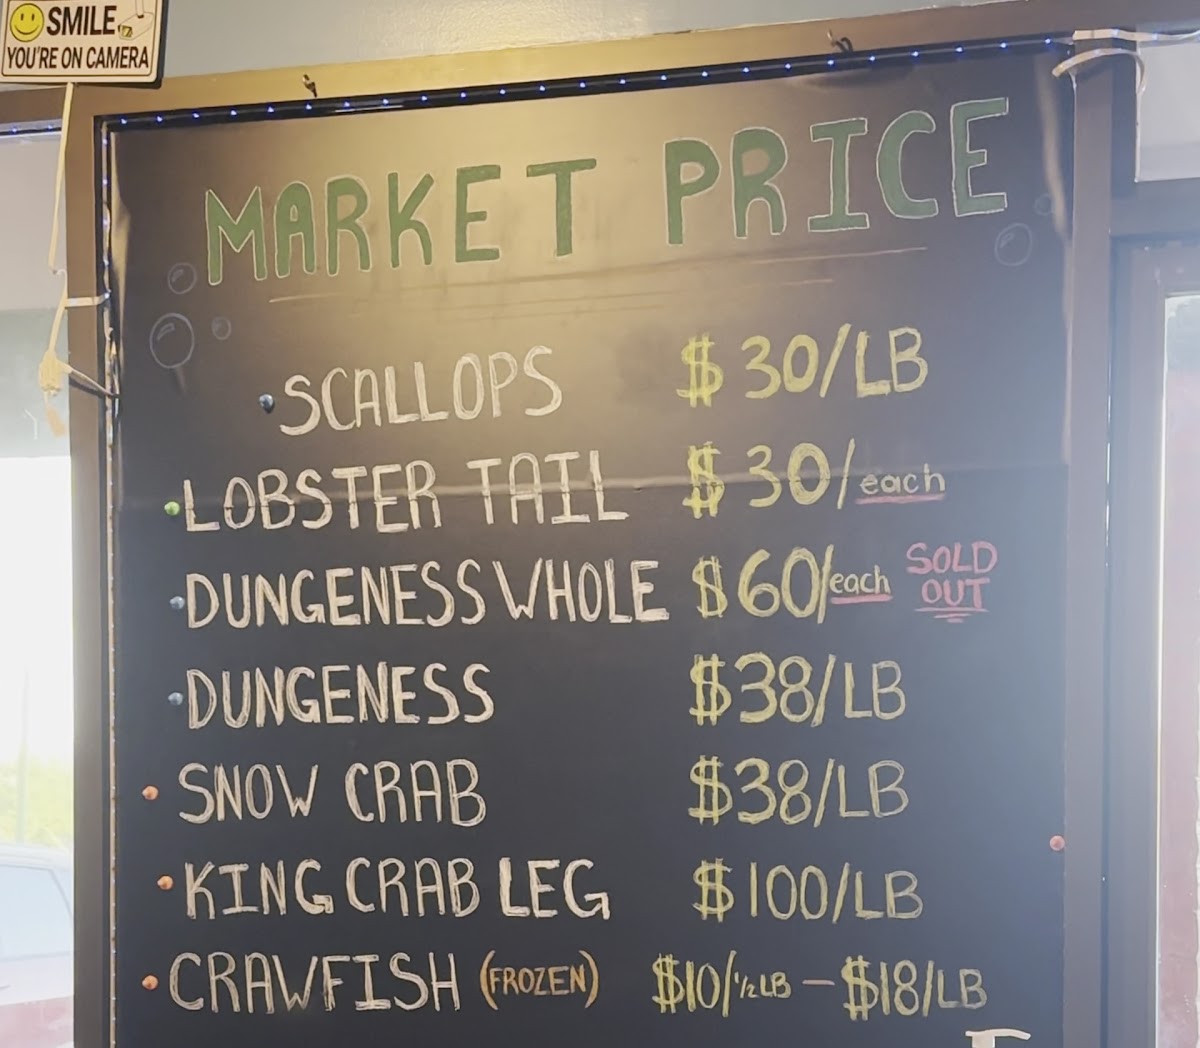 SMILE
YOU'RE ON CAMERA
MARKET PRICE
SCALLOPS $30/LB
LOBSTER TAIL $30/each
DUNGENESS WHOLE $60/each SOLD OUT
DUNGENESS $38/LB
SNOW CRAB $38/LB
KING CRAB LEG $100/LB
CRAWFISH (FROZEN) $10/½LB - $18/LB